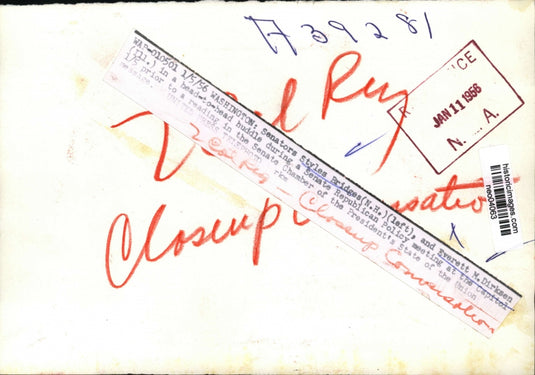 A39281
WAP-010501 1/5/56 WASHINGTON: Senators Styles Bridges(N.H.)(left), and Everett M.Dirksen
(Ill.) in a head-to-head huddle during a Senate Republican Policy meeting at the Capitol
1/5 prior to a reading in the Senate Chamber of the President's State of the Union
message. UNITED PRESS TELEPHOTO rke
2 Col Reg - Closeup Conversation
Col Reg
Closeup
JAN 11 1956
N. A.
historicimages.com
neo04063